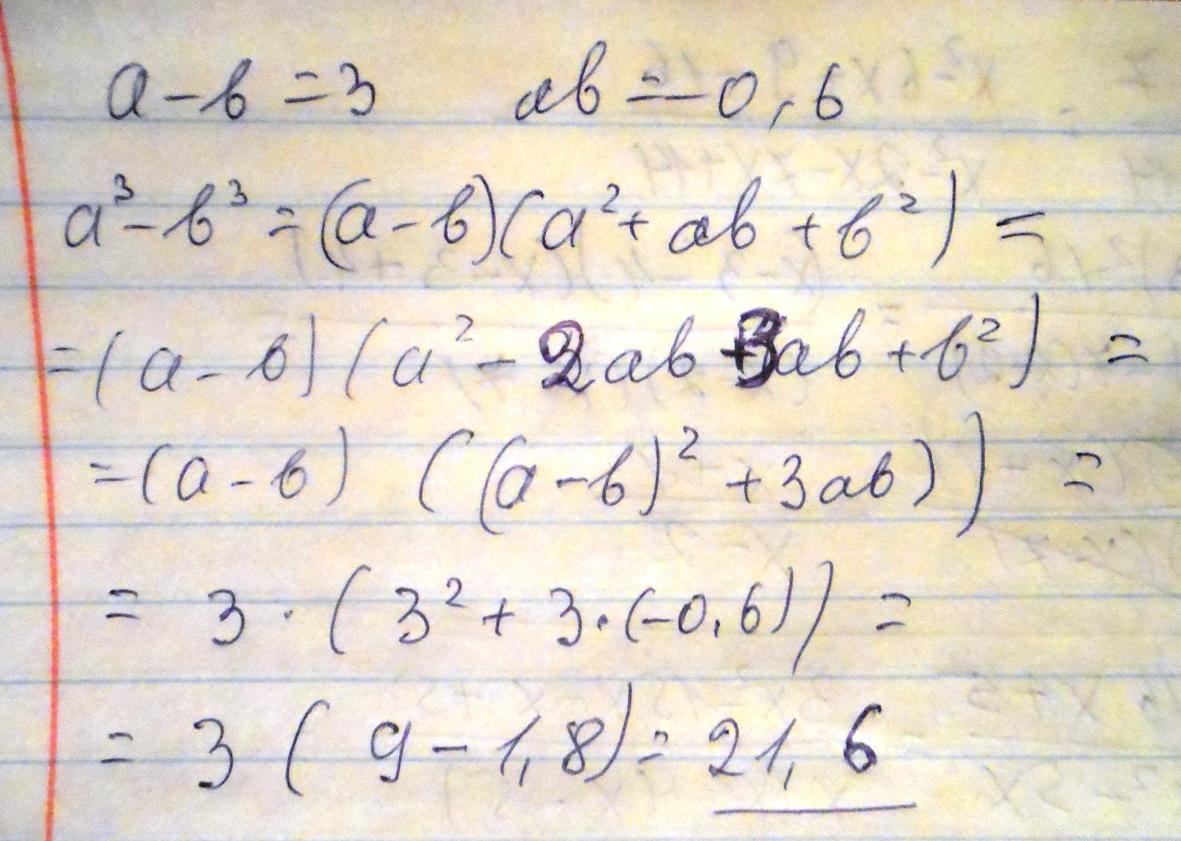 a-b=3 ab=-0,6
a³-b³=(a-b)(a²+ab+b²)=
=(a-b)(a²-2ab+3ab+b²)=
=(a-b) ((a-b)²+3ab))=
= 3·(3²+3·(-0,6))=
= 3(9-1,8)=21,6